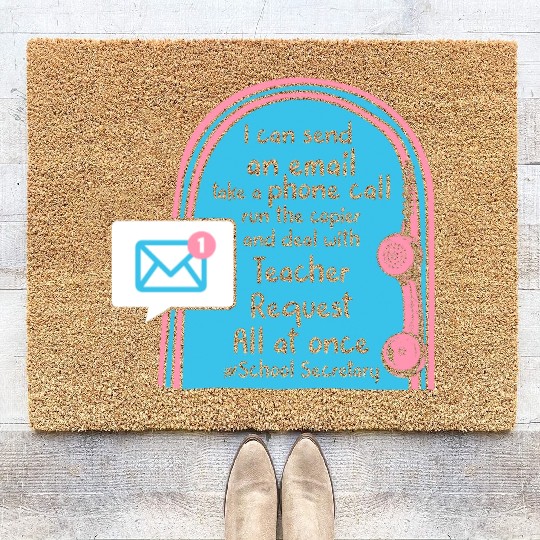 I can send
an email
take a phone call
run the copier
and deal with
Teacher
Request
All at once
#School Secretary
1